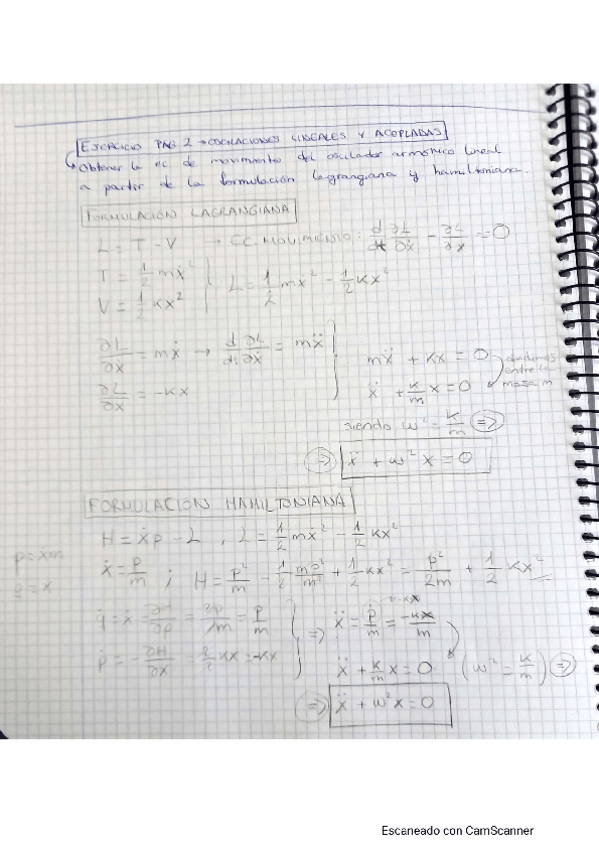 EJERCICIO PAG 2 → OSCILACIONES LINEALES Y ACOPLADAS
→ Obtener la ec de movimiento del oscilador armónico lineal
a partir de la formulación lagrangiana y hamiltoniana.
FORMULACIÓN LAGRANGIANA
L = T - V → EC. MOVIMIENTO: d/dt ∂L/∂ẋ - ∂L/∂x = 0
T = 1/2 mẋ²
V = 1/2 kx²
L = 1/2 mẋ² - 1/2 kx²
∂L/∂ẋ = mẋ → d/dt ∂L/∂ẋ = mẍ
∂L/∂x = -kx
mẍ + kx = 0
dividimos entre la masa m
ẍ + k/m x = 0
siendo ω² = k/m ⇒
⇒ ẍ + ω²x = 0
FORMULACIÓN HAMILTONIANA
H = ẋp - L , L = 1/2 mẋ² - 1/2 kx²
p = ẋm
ẋ = p/m ; H = p²/m - 1/2 mp²/m² + 1/2 kx² = p²/2m + 1/2 kx²
q = x
q̇ = ẋ = ∂H/∂p = 2p/2m = p/m
ṗ = -∂H/∂x = -2/2 kx = -kx
⇒ ẍ = ṗ/m = -kx/m
ẍ + k/m x = 0 (ω² = k/m) ⇒
⇒ ẍ + ω²x = 0
Escaneado con CamScanner